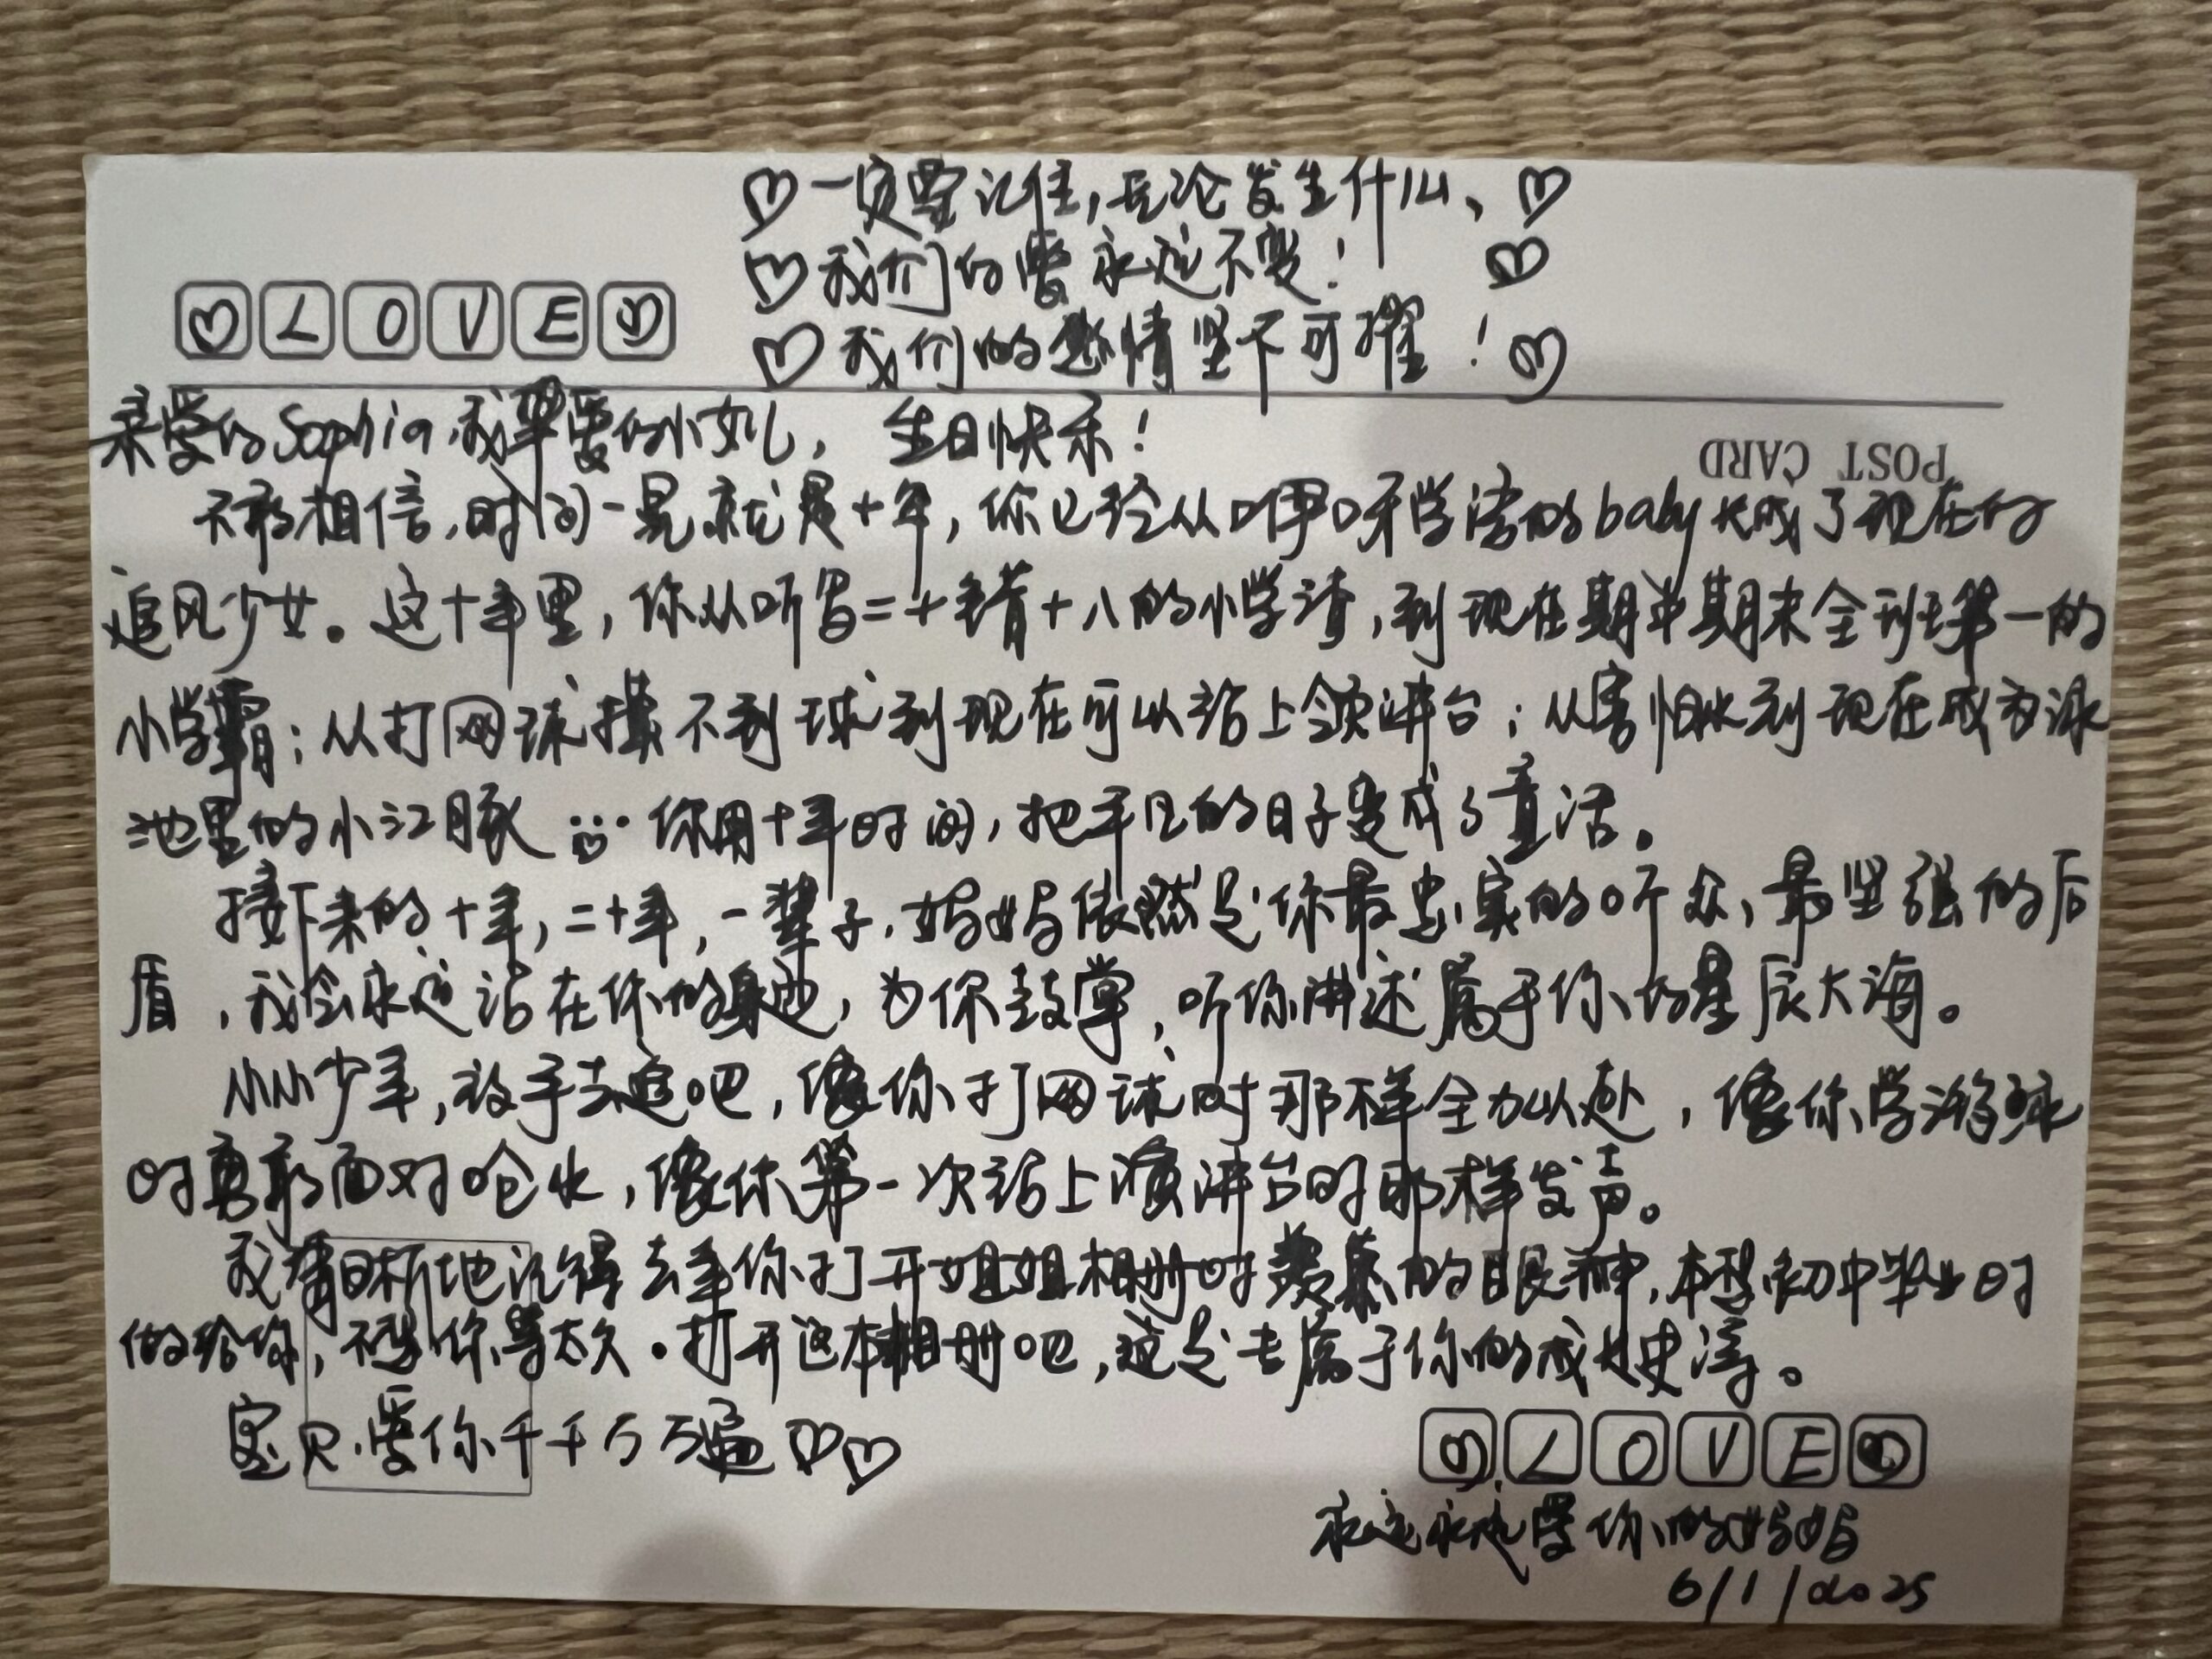 一定要记住,无论发生什么、
我们的爱永远不变!
LOVE
我们的感情坚不可摧!
亲爱的Sophia,我最爱的小女儿, 生日快乐!
POST CARD
不敢相信,时间一晃就是十年,你已经从咿呀学语的baby长成了现在的
追风少女。这十年里,你从听写二十错十八的小学渣,到现在期中期末全班第一的
小学霸;从打网球摸不到球到现在可以站上领讲台;从害怕水到现在成为泳
池里的小江豚 你用十年时间,把平凡的日子变成了童话。
接下来的十年,二十年,一辈子,妈妈依然是你最忠实的听众、最坚强的后
盾,我会永远站在你的身边,为你鼓掌,听你讲述属于你的星辰大海。
小小少年,放手去追吧,像你打网球时那样全力以赴,像你学游泳
时勇敢面对呛水,像你第一次站上演讲台时那样发声。
我清晰地记得去年你打开姐姐相册时羡慕的眼神,本想初中毕业时
做给你,不想你等太久。打开这本相册吧,这是专属于你的成长史诗。
宝贝,爱你千千万万遍
LOVE
永远永远爱你的妈妈
6/1/2025